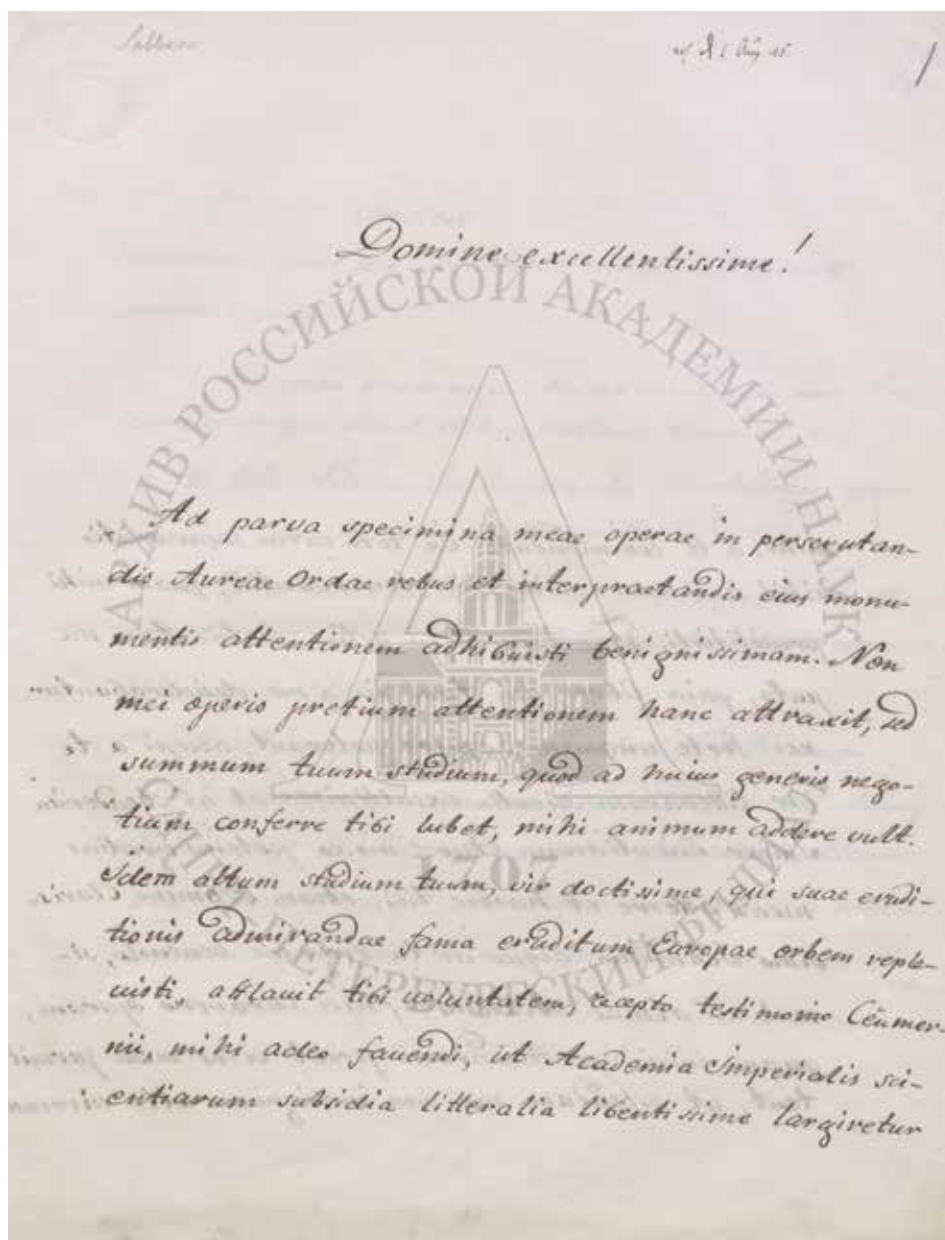 1
Domine excellentissime!
АРХИВ РОССИЙСКОЙ АКАДЕМИИ НАУК
Ad parva specimina meae operae in perscrutan-
dis Aureae Ordae rebus et interpraetandis eius monu-
mentis attentionem adhibuisti benignissimam. Non
mei operis pretium attentionem hanc attraxit, sed
summum tuum studium, quod ad huius generis nego-
tium conferre tibi lubet, mihi animum addere vult.
1707
Idem altum studium tuum, vir doctissime, qui suae erudi-
tionis admirandae fama eruditum Europae orbem reple-
uisti, afflauit tibi uoluntatem, accepto testimonio
nii, mihi adeo fauendi, ut Academia Imperialis sci-
entiarum subsidia litteralia libentissime largiretur
САНКТ-ПЕТЕРБУРГСКИЙ ФИЛИАЛ